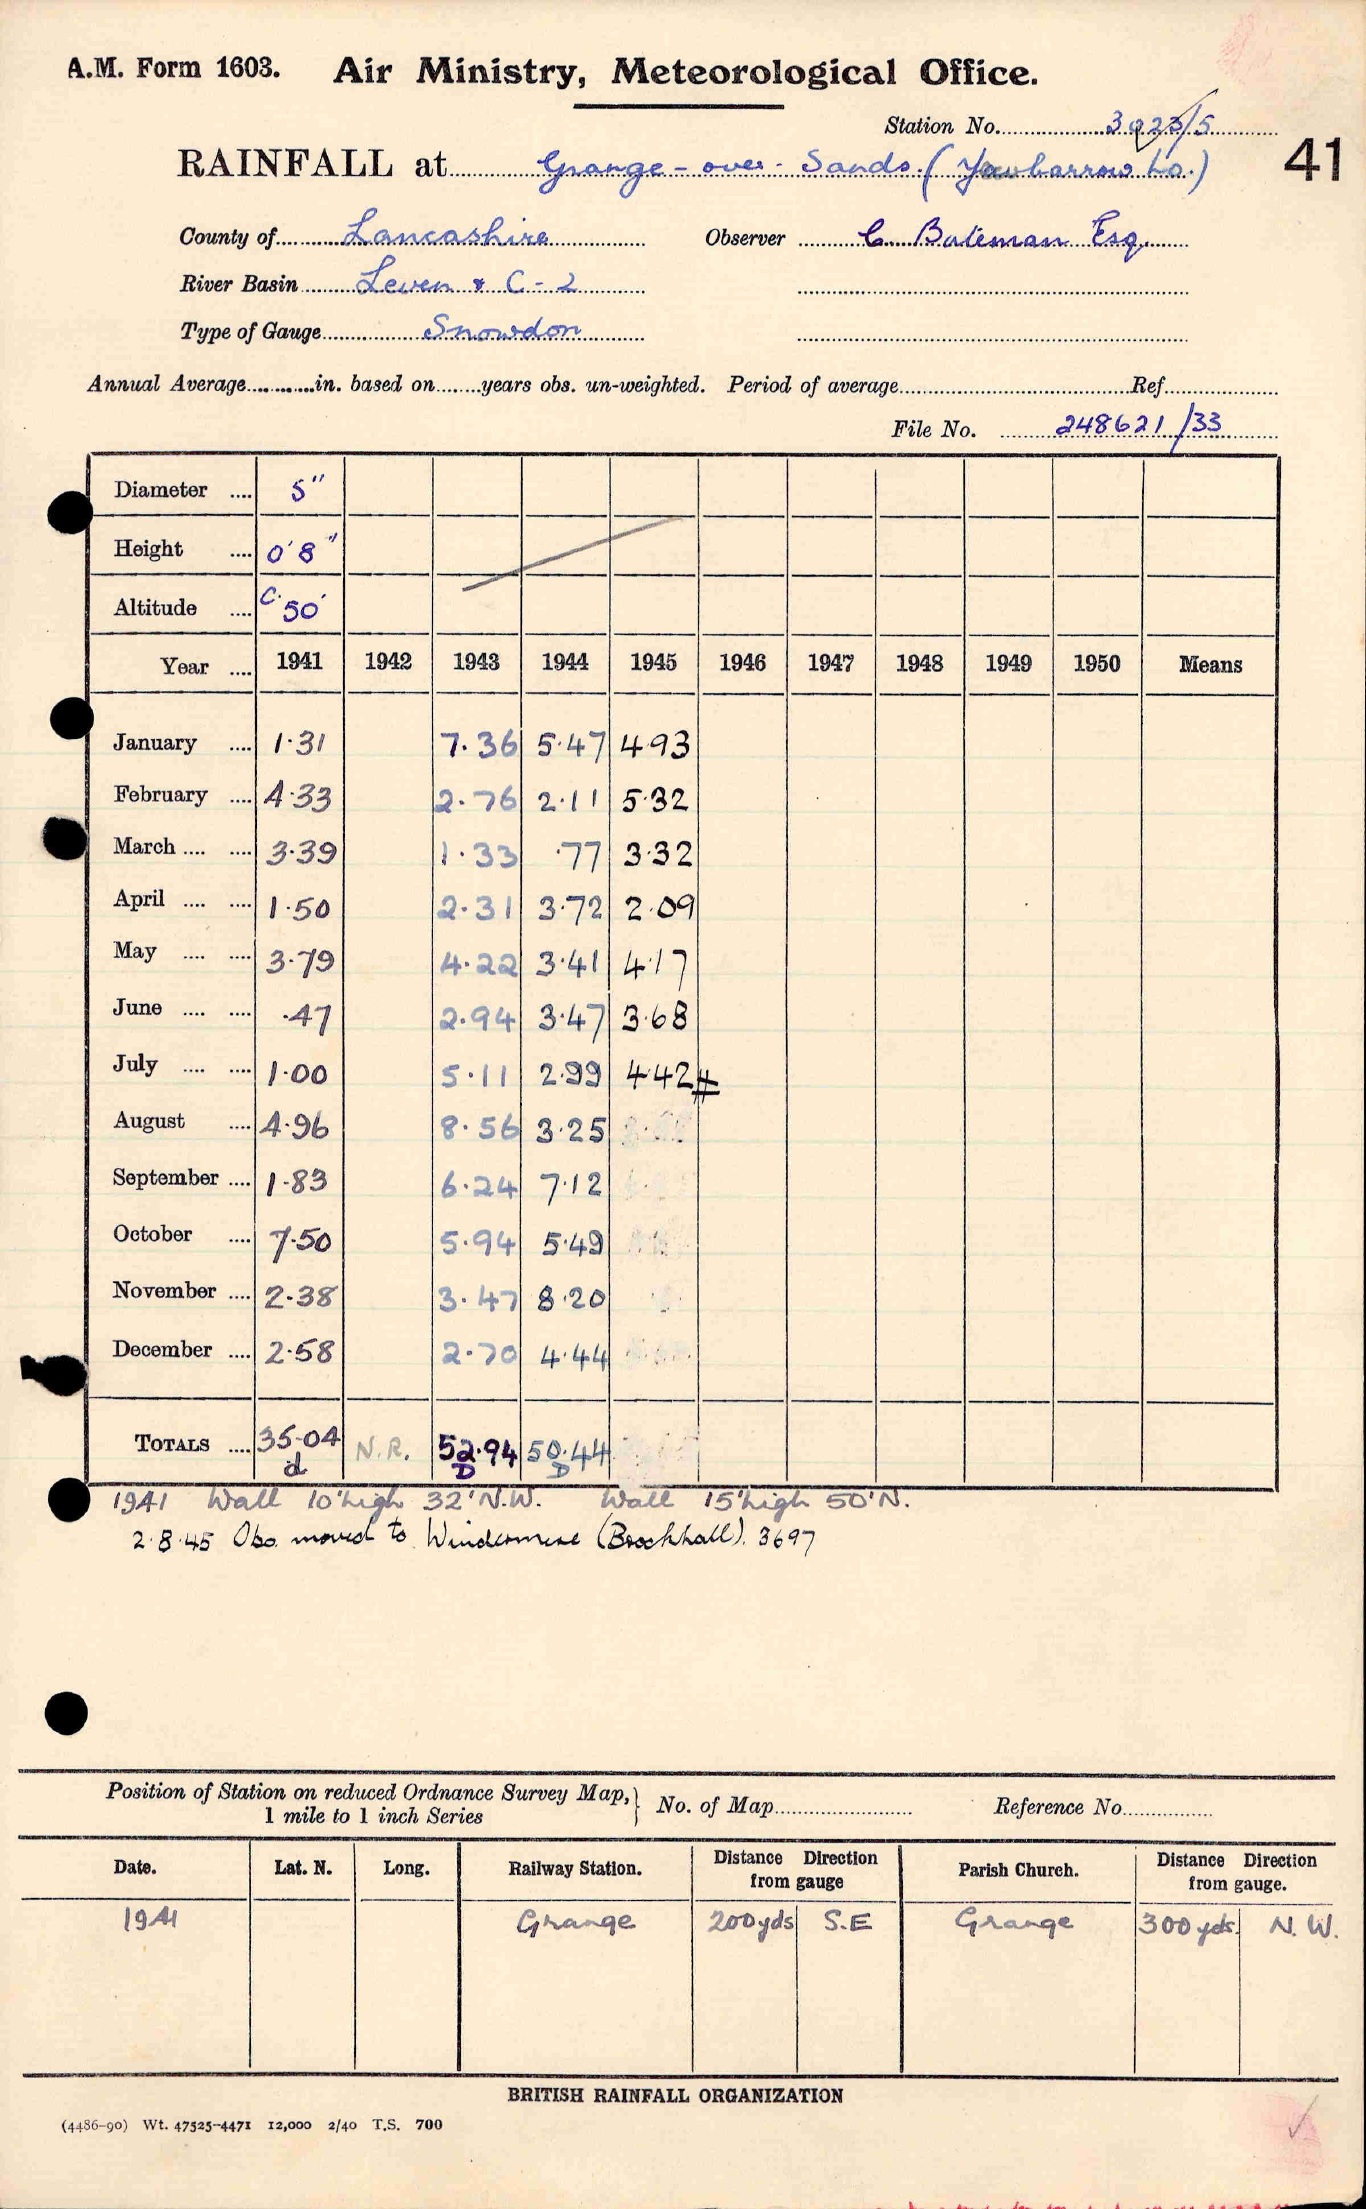 A.M. Form 1603. Air Ministry, Meteorological Office.
Station No. 3023/5
41
RAINFALL at Grange-over-Sands. (Yewbarrow Lo.)
County of Lancashire Observer C. Bateman Esq.
River Basin Leven & C-2
Type of Gauge Snowdon
Annual Average in. based on years obs. un-weighted. Period of average Ref.
File No. 248621/33
Diameter 5"
Height 0'8"
Altitude C. 50'
Year 1941 1942 1943 1944 1945 1946 1947 1948 1949 1950 Means
January 1.31 7.36 5.47 4.93
February 4.33 2.76 2.11 5.32
March 3.39 1.33 .77 3.32
April 1.50 2.31 3.72 2.09
May 3.79 4.22 3.41 4.17
June .47 2.94 3.47 3.68
July 1.00 5.11 2.99 4.42
August 4.96 8.56 3.25
September 1.83 6.24 7.12
October 7.50 5.94 5.49
November 2.38 3.47 8.20
December 2.58 2.70 4.44
TOTALS 35.04 N.R. 52.94 50.44
d D D
1941 Wall 10' high 32' N.W. Wall 15' high 50' N.
2.8.45 Obs. moved to Windermere (Brockhall). 3697
Position of Station on reduced Ordnance Survey Map, 1 mile to 1 inch Series No. of Map Reference No.
Date. Lat. N. Long. Railway Station. Distance Direction from gauge Parish Church. Distance Direction from gauge.
1941 Grange 200 yds S.E Grange 300 yds. N.W.
BRITISH RAINFALL ORGANIZATION
(4486-90) Wt. 47525-4471 12,000 2/40 T.S. 700